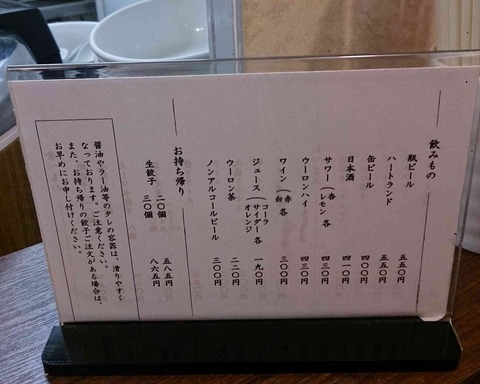 飲みもの
瓶ビール 五五〇円
ハートランド 五五〇円
缶ビール 四〇〇円
日本酒 四一〇円
サワー(杏 レモン 各 四三〇円
ウーロンハイ 四三〇円
ワイン(赤 白 各 三〇〇円
ジュース(コーラ サイダー オレンジ 各 一九〇円
ウーロン茶 二二〇円
ノンアルコールビール 三〇〇円
お持ち帰り
生餃子 二〇個 五八五円
三〇個 八六五円
醤油やラー油等のタレの容器は、滑りやすく
なっております。ご注意ください。
また、お持ち帰りの餃子ご注文がある場合は、
お早めにお申し付けください。